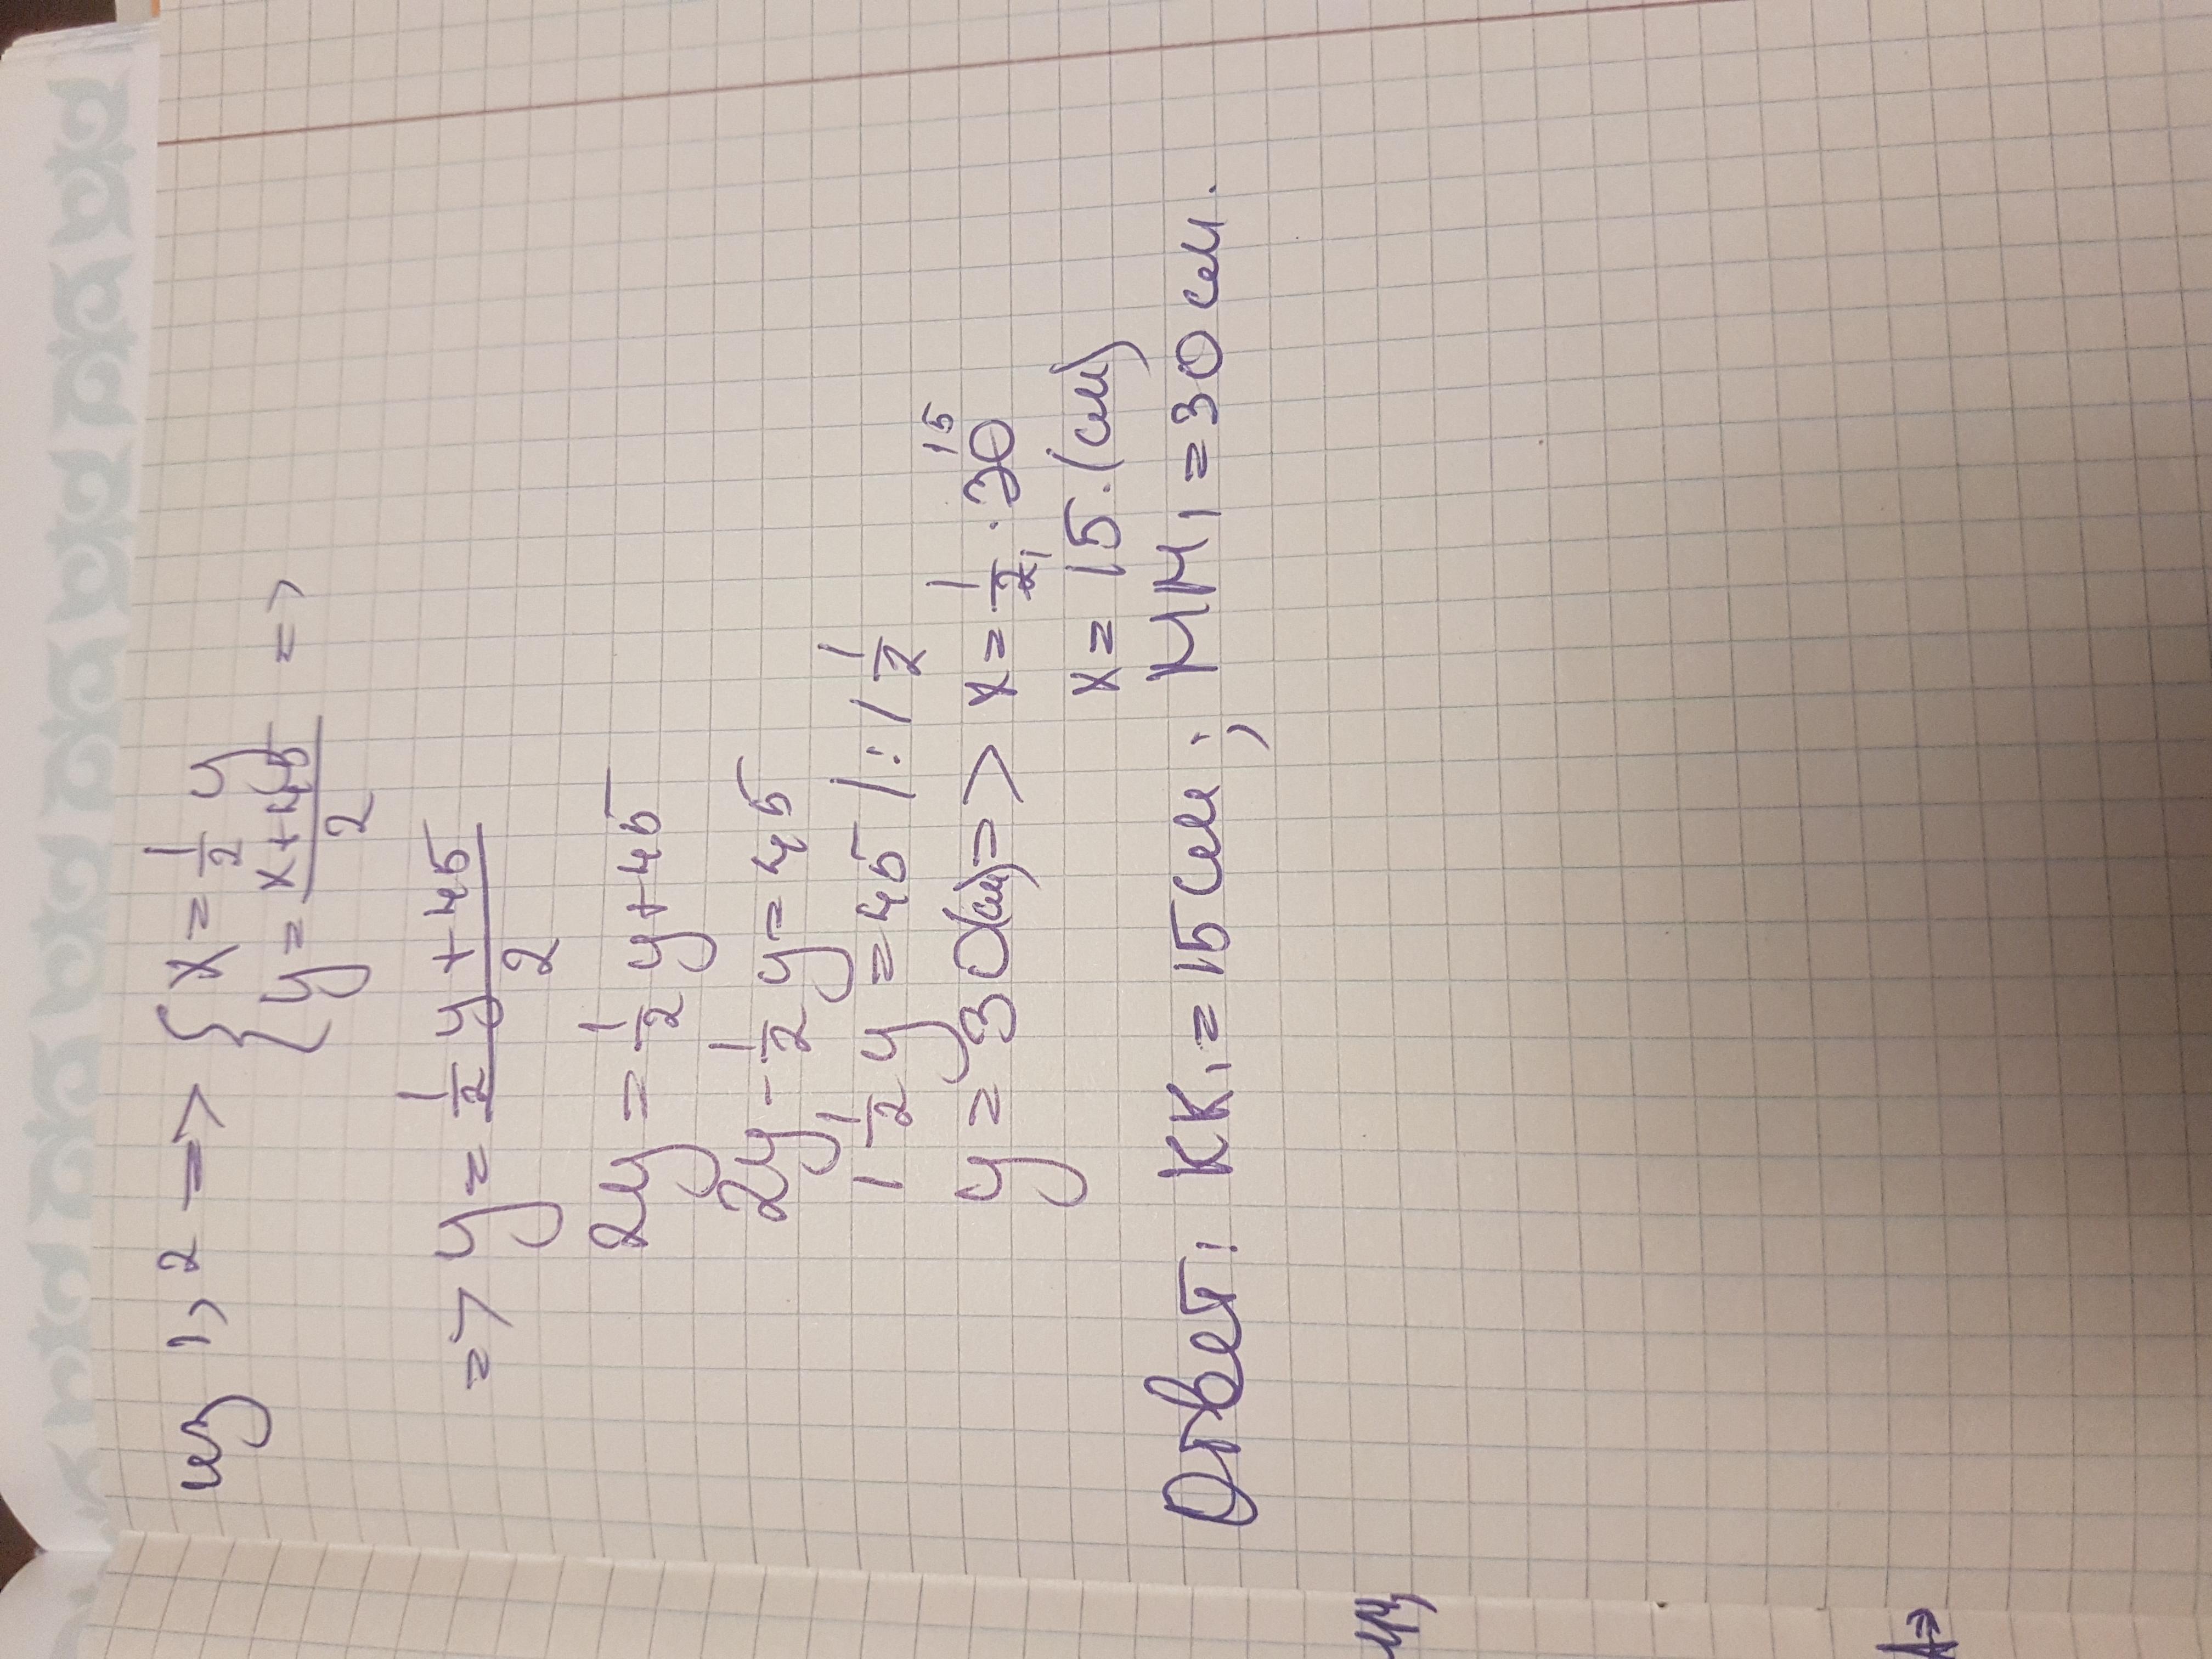 из 1, 2 => { x = 1/2 y
y = (x+45)/2 =>
=> y = (1/2 y + 45)/2
2y = 1/2 y + 45
2y - 1/2 y = 45
1 1/2 y = 45 /: 1 1/2
y = 30(см) => x = 1/2 1 · 30 15
x = 15. (см)
Ответ: KK1 = 15 см; MM1 = 30 см.